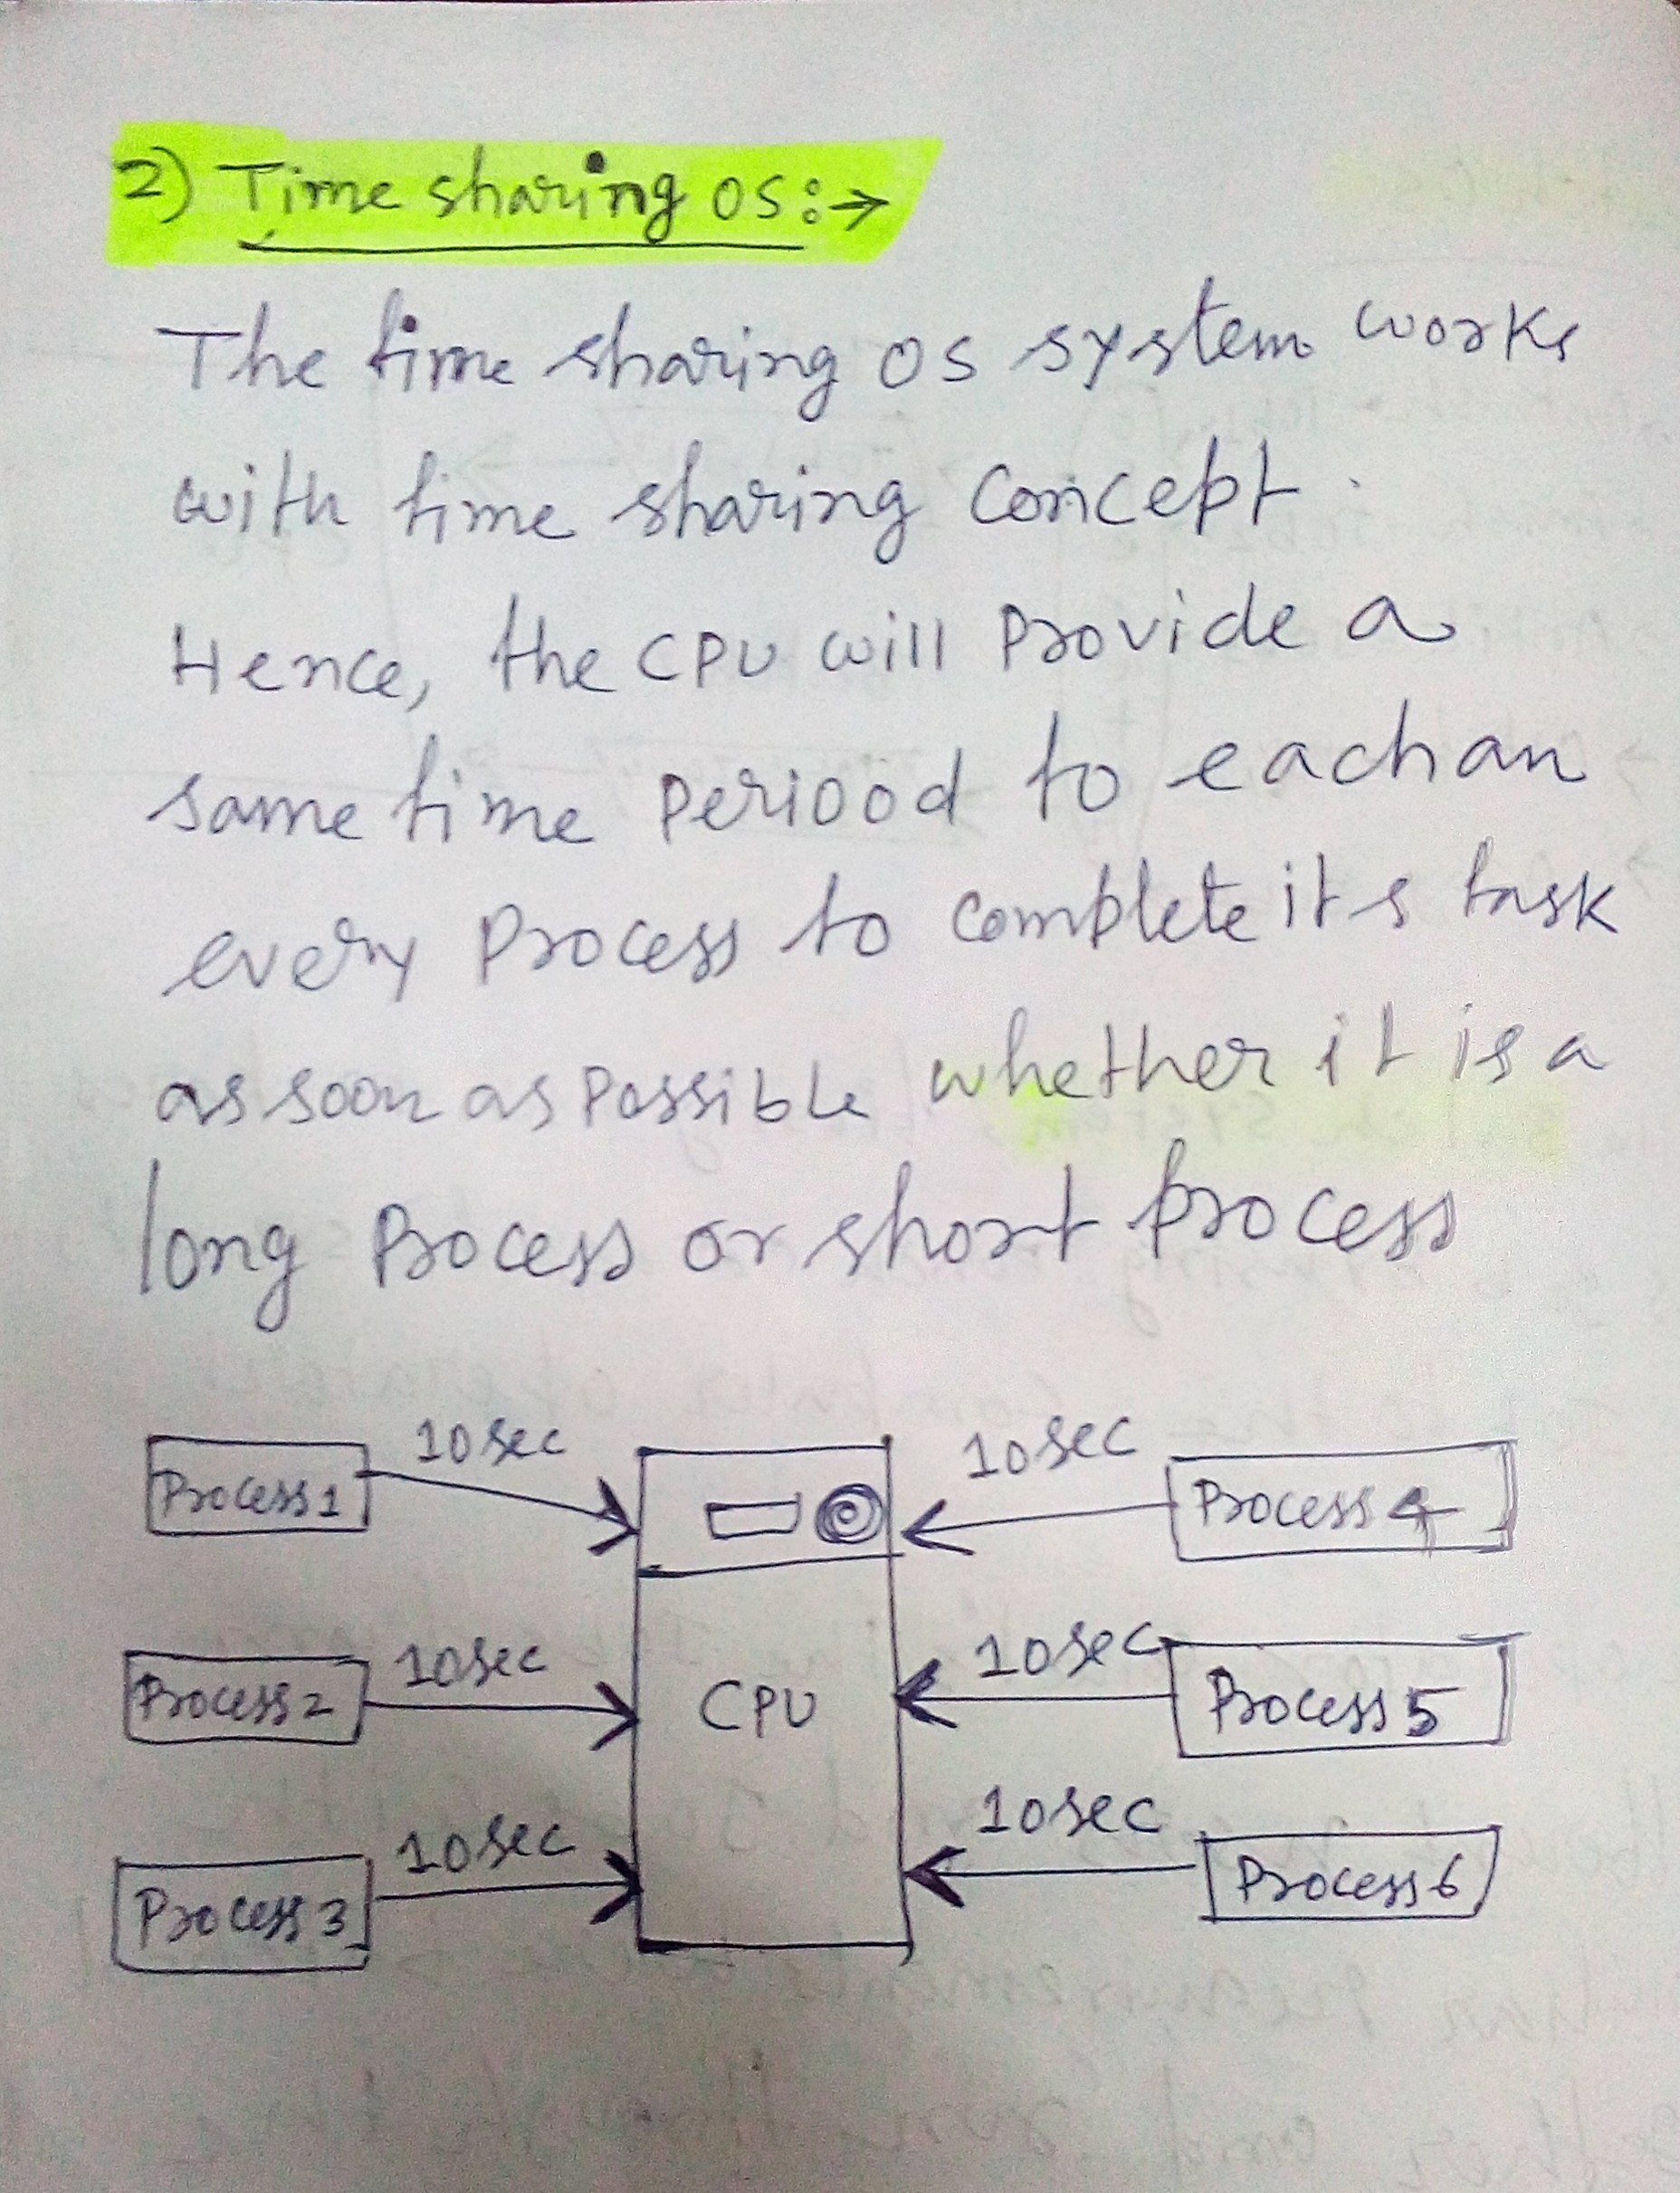 2) Time sharing OS:→
The time sharing OS system works
with time sharing Concept.
Hence, the CPU will Provide a
same time Periood to each an
every Process to complete its task
as soon as Possible whether it is a
long Process or short process
Process1 10sec 10sec Process4
Process2 10sec CPU 10sec Process5
Process3 10sec 10sec Process6